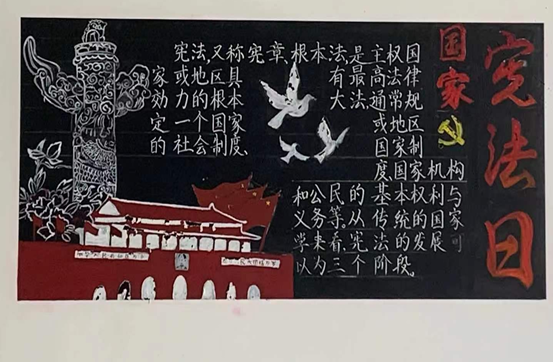 国家
宪法日
宪法,又称宪章、根本法,是主权国
家或地区具有最高法律
效力的根本大法,通常规
定一个国家或地区
的社会制度、国家制
度国家机构
和公民的基本权利与
义务等。从传统的国家
学来看,宪法的发展可
以为三个阶段。